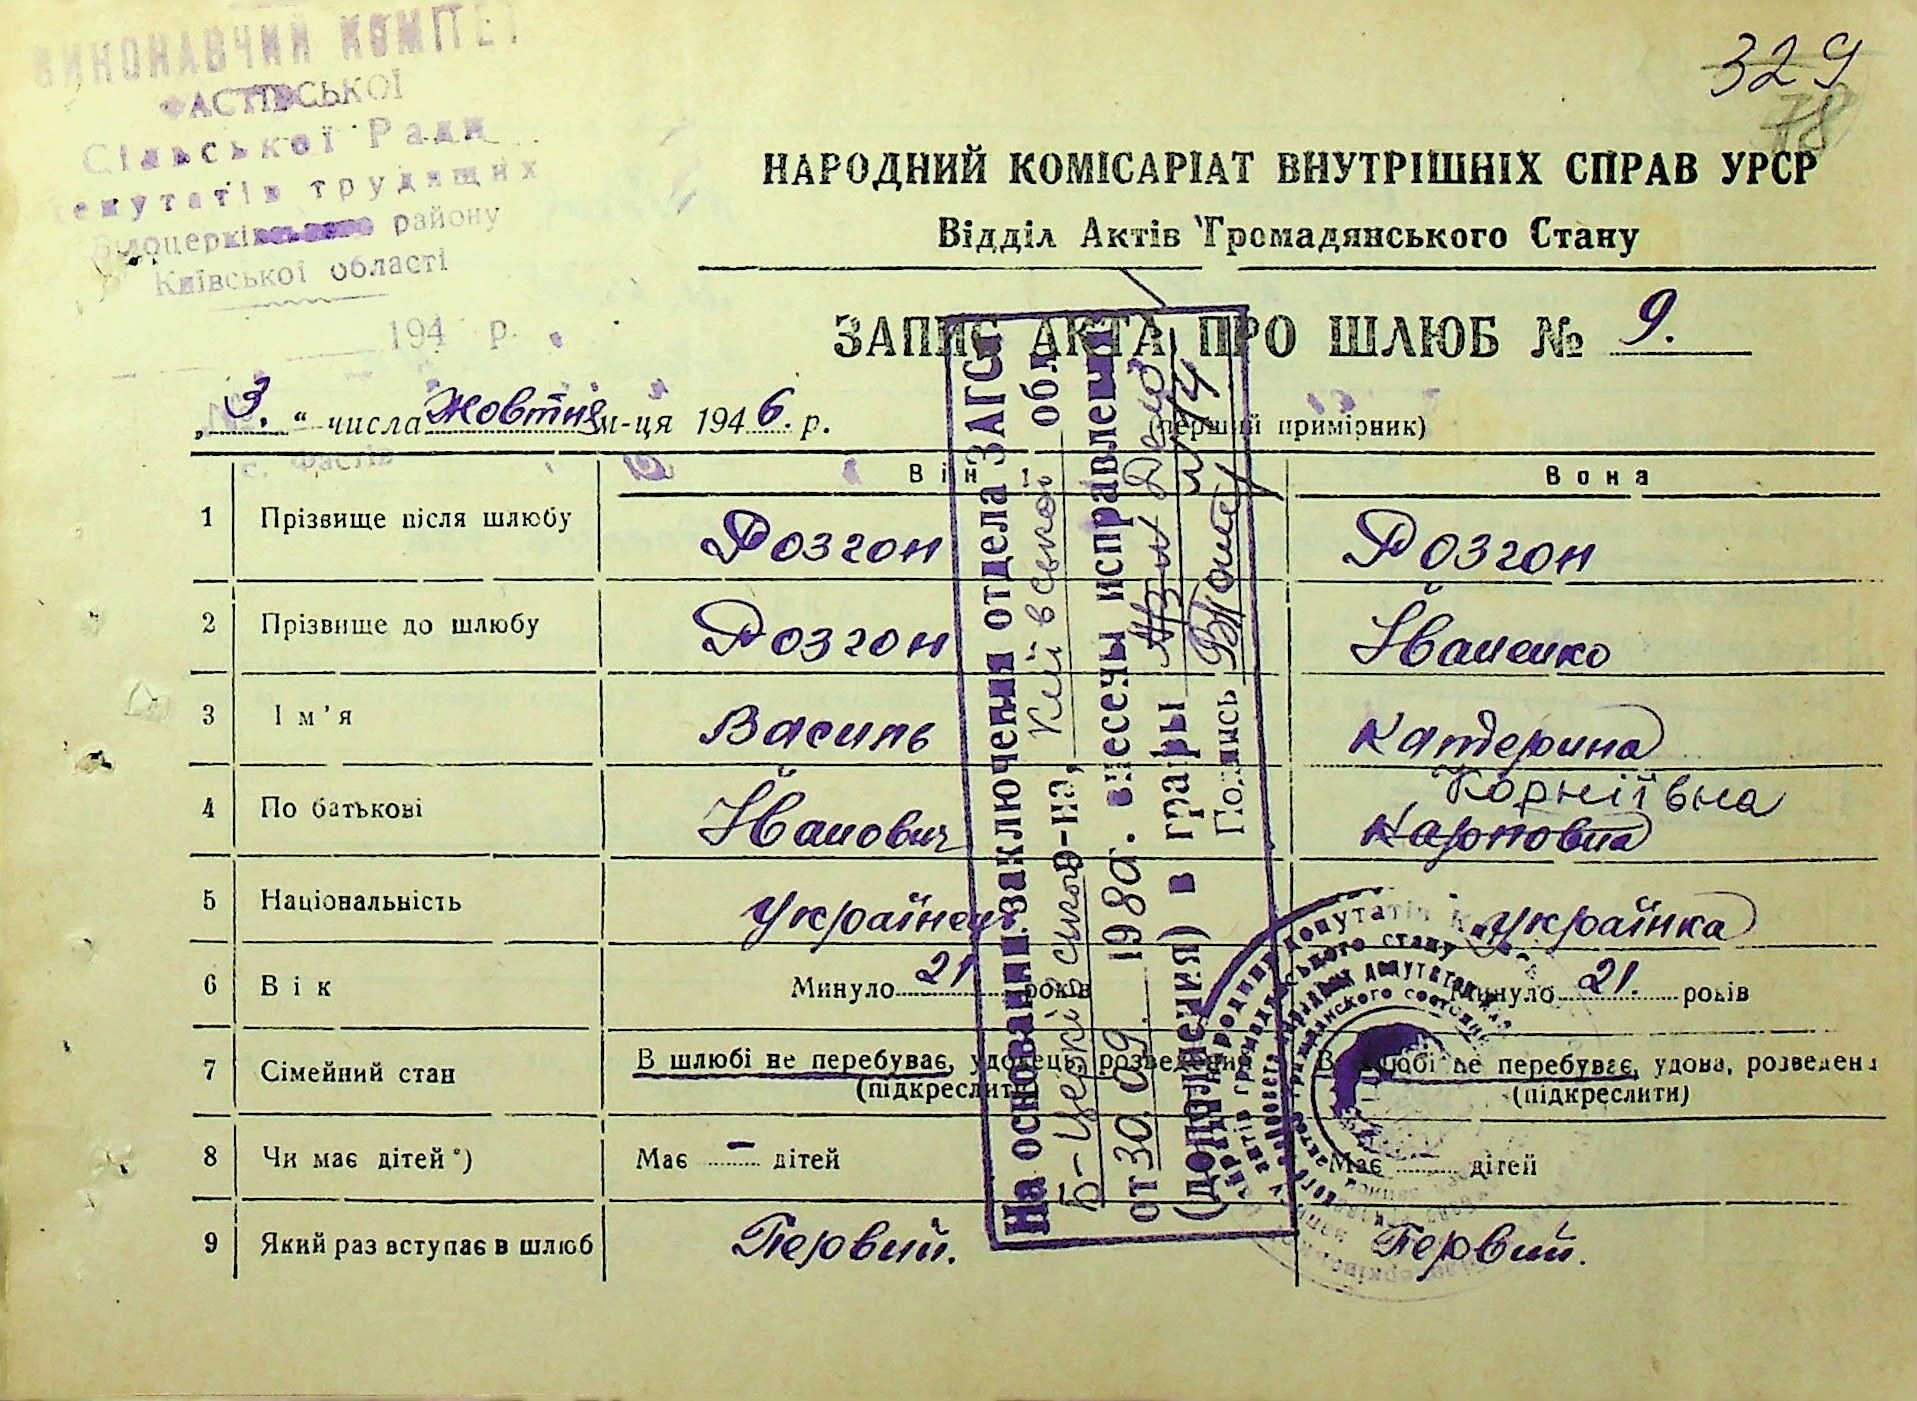 329
78
ВИКОНАВЧИЙ КОМІТЕТ
ФАСТІВСЬКОЇ
Сільської Ради
депутатів трудящих
Білоцерківського району
Київської області
194 р.
с. Фастів
НАРОДНИЙ КОМІСАРІАТ ВНУТРІШНІХ СПРАВ УРСР
Відділ Актів Громадянського Стану
ЗАПИС АКТА ПРО ШЛЮБ № 9.
„3.“ числа Жовтня м-ця 1946. р.
(перший примірник)
Він Вона
1 Прізвище після шлюбу Розгон Розгон
2 Прізвище до шлюбу Розгон Іваненко
3 Ім'я Василь Катерина
4 По батькові Йванович Корніївна
Карповна
5 Національність Українець Українка
6 Вік Минуло 21 років Минуло 21. років
7 Сімейний стан В шлюбі не перебуває, удовець, розведений В шлюбі не перебуває, удова, розведена
(підкреслити) (підкреслити)
8 Чи має дітей*) Має — дітей Має дітей
9 Який раз вступає в шлюб Первий. Первий.
На основании заключения отдела ЗАГСа
Б-Церківського р-на, Київської обл.
от 30.09. 198 г. внесены исправления
(дополнения) в графы
Подпись